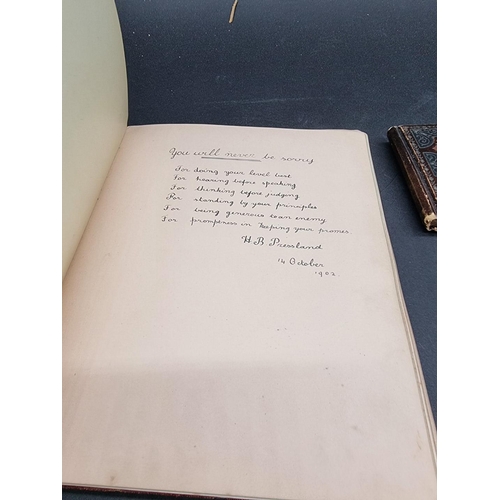 You will never be sorry
For doing your level best
For hearing before speaking
For thinking before judging
For standing by your principles
For being generous to an enemy
For promptness in keeping your promises
H B Pressland
14 October
1902.